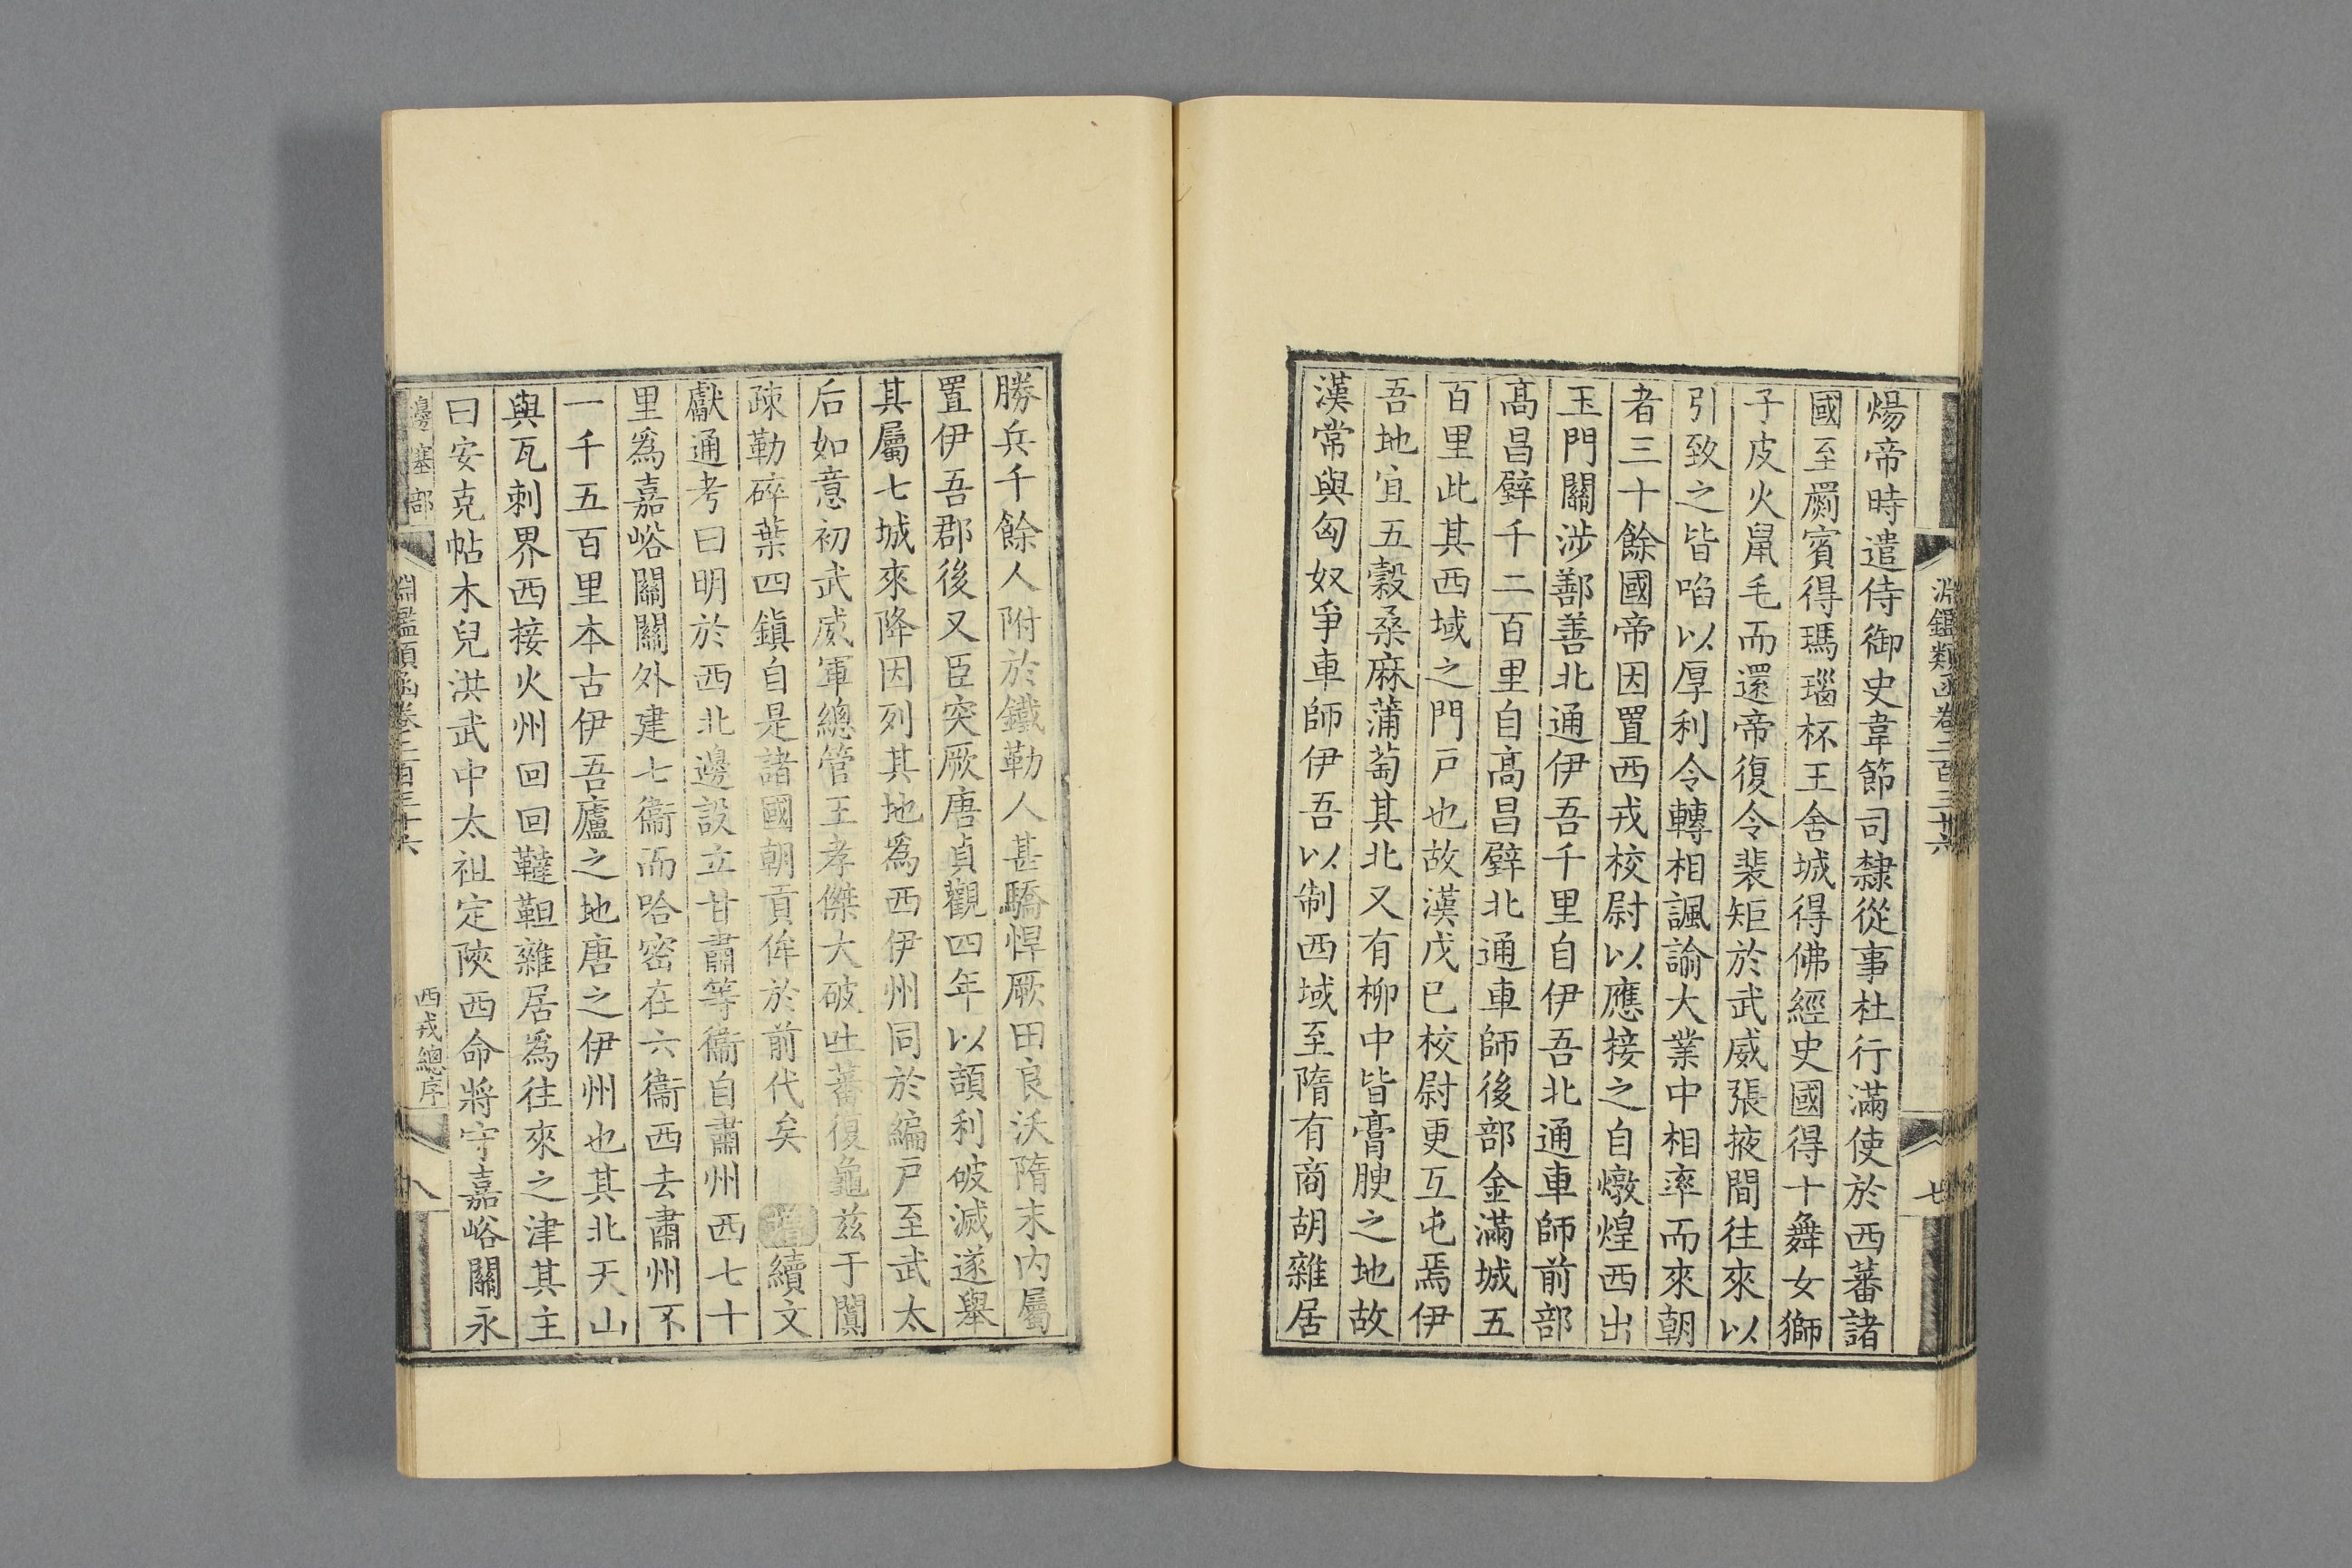 淵鑑類函卷二百三十六
七
煬帝時遣侍御史韋節司隸從事杜行滿使於西蕃諸
國至罽賓得瑪瑙杯王舍城得佛經史國得十舞女獅
子皮火鼠毛而還帝復令裴矩於武威張掖間往來以
引致之皆啗以厚利令轉相諷諭大業中相率而來朝
者三十餘國帝因置西戎校尉以應接之自燉煌西出
玉門關涉鄯善北通伊吾千里自伊吾北通車師前部
高昌壁千二百里自高昌壁北通車師後部金滿城五
百里此其西域之門戸也故漢戊巳校尉更互屯焉伊
吾地宜五穀桑麻蒲萄其北又有柳中皆膏腴之地故
漢常與匈奴爭車師伊吾以制西域至隋有商胡雜居
勝兵千餘人附於鐵勒人甚驕悍厥田良沃隋末內屬
置伊吾郡後又臣突厥唐貞觀四年以頡利破滅遂舉
其屬七城來降因列其地爲西伊州同於編戸至武太
后如意初武威軍總管王孝傑大破吐蕃復龜兹于闐
疎勒碎葉四鎮自是諸國朝貢侔於前代矣 增續文
獻通考曰明於西北邊設立甘肅等衞自肅州西七十
里爲嘉峪關關外建七衞而哈密在六衞西去肅州不
一千五百里本古伊吾廬之地唐之伊州也其北天山
與瓦剌界西接火州回回韃靼雜居爲往來之津其主
曰安克帖木兒洪武中太祖定陝西命將守嘉峪關永
邊塞部
淵鑑類函卷二百三十六
西戎總序
八